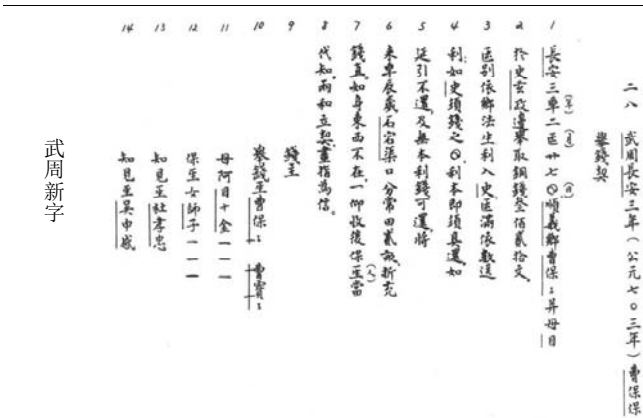 二八 武周長安三年(公元七〇三年)曹保保
舉錢契
1 長安三𠡦(年)二𠥱(月)廿七〇(日)順義鄉曹保:并母目
2 於史玄政邊舉取銅錢叁佰貳拾文。
3 𠥱别依鄉法生利入史,𠥱滿依數送
4 利;如史須錢之〇,利本即須具還。如
5 延引不還,及無本利錢可還,將
6 來𠡦辰歲石宕渠口分常田貳畝,折充
7 錢直。如身東西不在,一仰收後保𤯔(人)當
8 代知。兩和立契,畫指爲信。
9 錢主
10 舉錢𤯔曹保: 曹寶:
11 母阿目十金一一一
12 保𤯔女師子一一一
13 知見𤯔杜孝忠
14 知見𤯔吳申感
武周新字